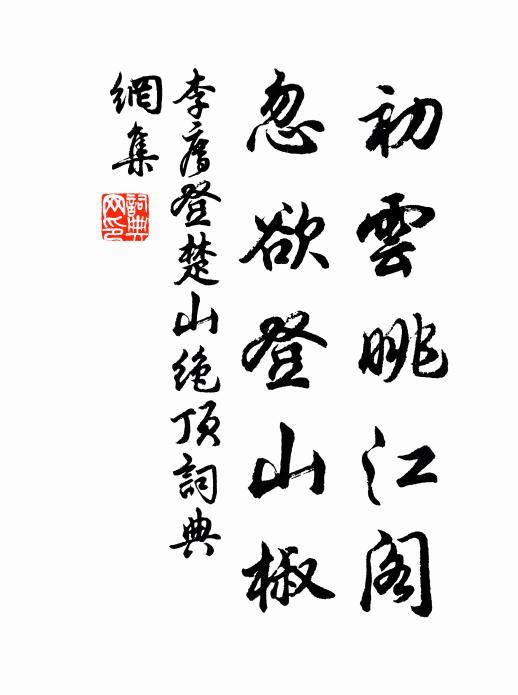 初雲眺江閣
忽欲登山椒
李廌登楚山绝頂詞典
網集
詞典
网印